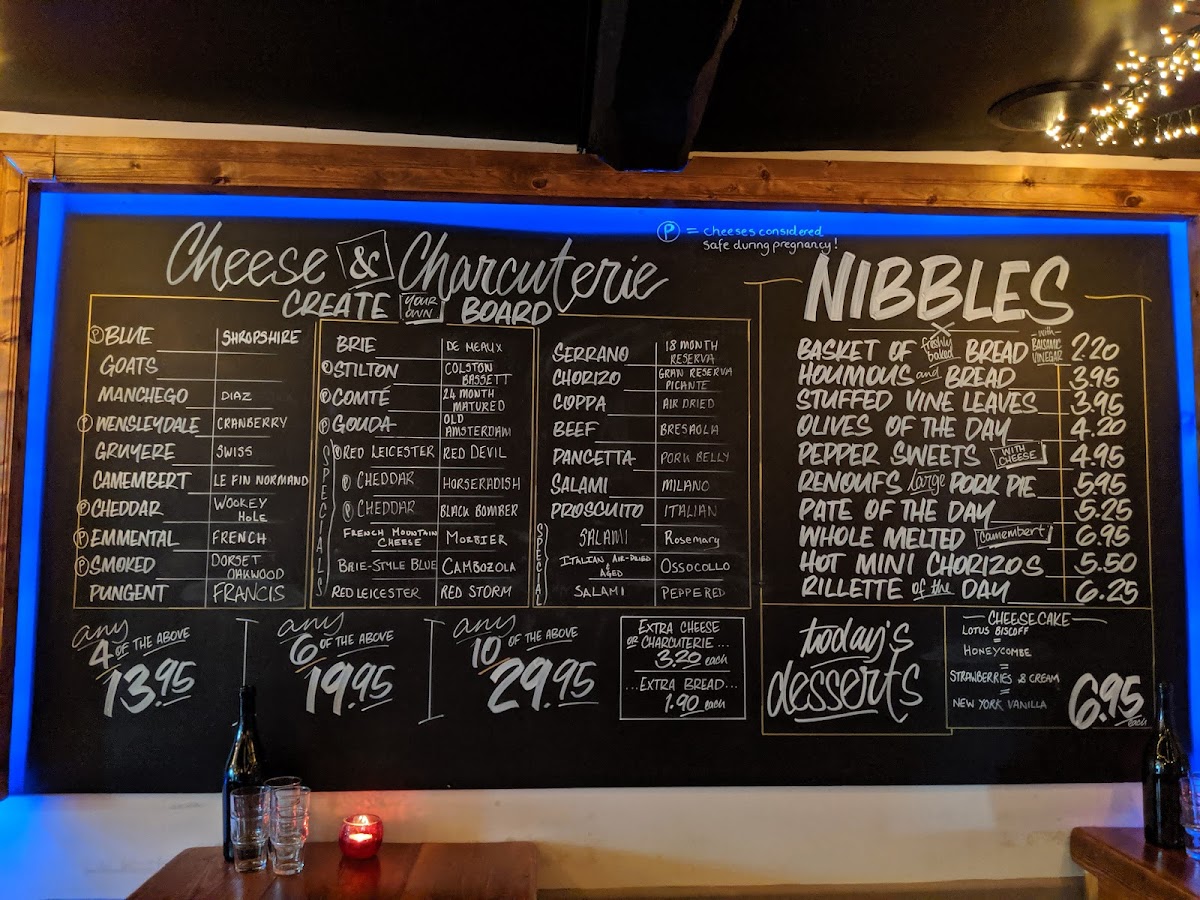 Cheese & Charcuterie
CREATE YOUR OWN BOARD
Ⓟ = cheeses considered
safe during pregnancy!
Ⓟ BLUE SHROPSHIRE
GOATS
MANCHEGO DIAZ
Ⓟ WENSLEYDALE CRANBERRY
GRUYERE SWISS
CAMEMBERT LE FIN NORMAND
Ⓟ CHEDDAR WOOKEY HOLE
Ⓟ EMMENTAL FRENCH
Ⓟ SMOKED DORSET OAKWOOD
PUNGENT FRANCIS
BRIE DE MEAUX
Ⓟ STILTON COLSTON BASSETT
Ⓟ COMTÉ 24 MONTH MATURED
Ⓟ GOUDA OLD AMSTERDAM
SPECIALS
Ⓟ RED LEICESTER RED DEVIL
Ⓟ CHEDDAR HORSERADISH
Ⓟ CHEDDAR BLACK BOMBER
FRENCH MOUNTAIN CHEESE MORBIER
BRIE-STYLE BLUE CAMBOZOLA
RED LEICESTER RED STORM
SERRANO 18 MONTH RESERVA
CHORIZO GRAN RESERVA PICANTE
COPPA AIR DRIED
BEEF BRESAOLA
PANCETTA PORK BELLY
SALAMI MILANO
PROSCUITO ITALIAN
SPECIAL
SALAMI Rosemary
ITALIAN AIR-DRIED & AGED OSSOCOLLO
SALAMI PEPPERED
any 4 OF THE ABOVE
13.95
any 6 OF THE ABOVE
19.95
any 10 OF THE ABOVE
29.95
EXTRA CHEESE
OR CHARCUTERIE...
3.20 each
...EXTRA BREAD...
1.90 each
NIBBLES
BASKET OF freshly baked BREAD with BALSAMIC VINEGAR 2.20
HOUMOUS and BREAD 3.95
STUFFED VINE LEAVES 3.95
OLIVES OF THE DAY 4.20
PEPPER SWEETS WITH CHEESE 4.95
RENOUFS Large PORK PIE 5.95
PATE OF THE DAY 5.25
WHOLE MELTED Camembert 6.95
HOT MINI CHORIZOS 5.50
RILLETTE of the DAY 6.25
today's
desserts
CHEESECAKE
LOTUS BISCOFF
=
HONEYCOMBE
=
STRAWBERRIES & CREAM
=
NEW YORK VANILLA
6.95 each